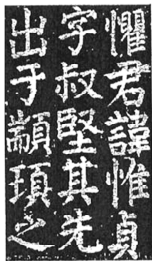 懼君諱惟貞
字叔堅其先
出于顓頊之